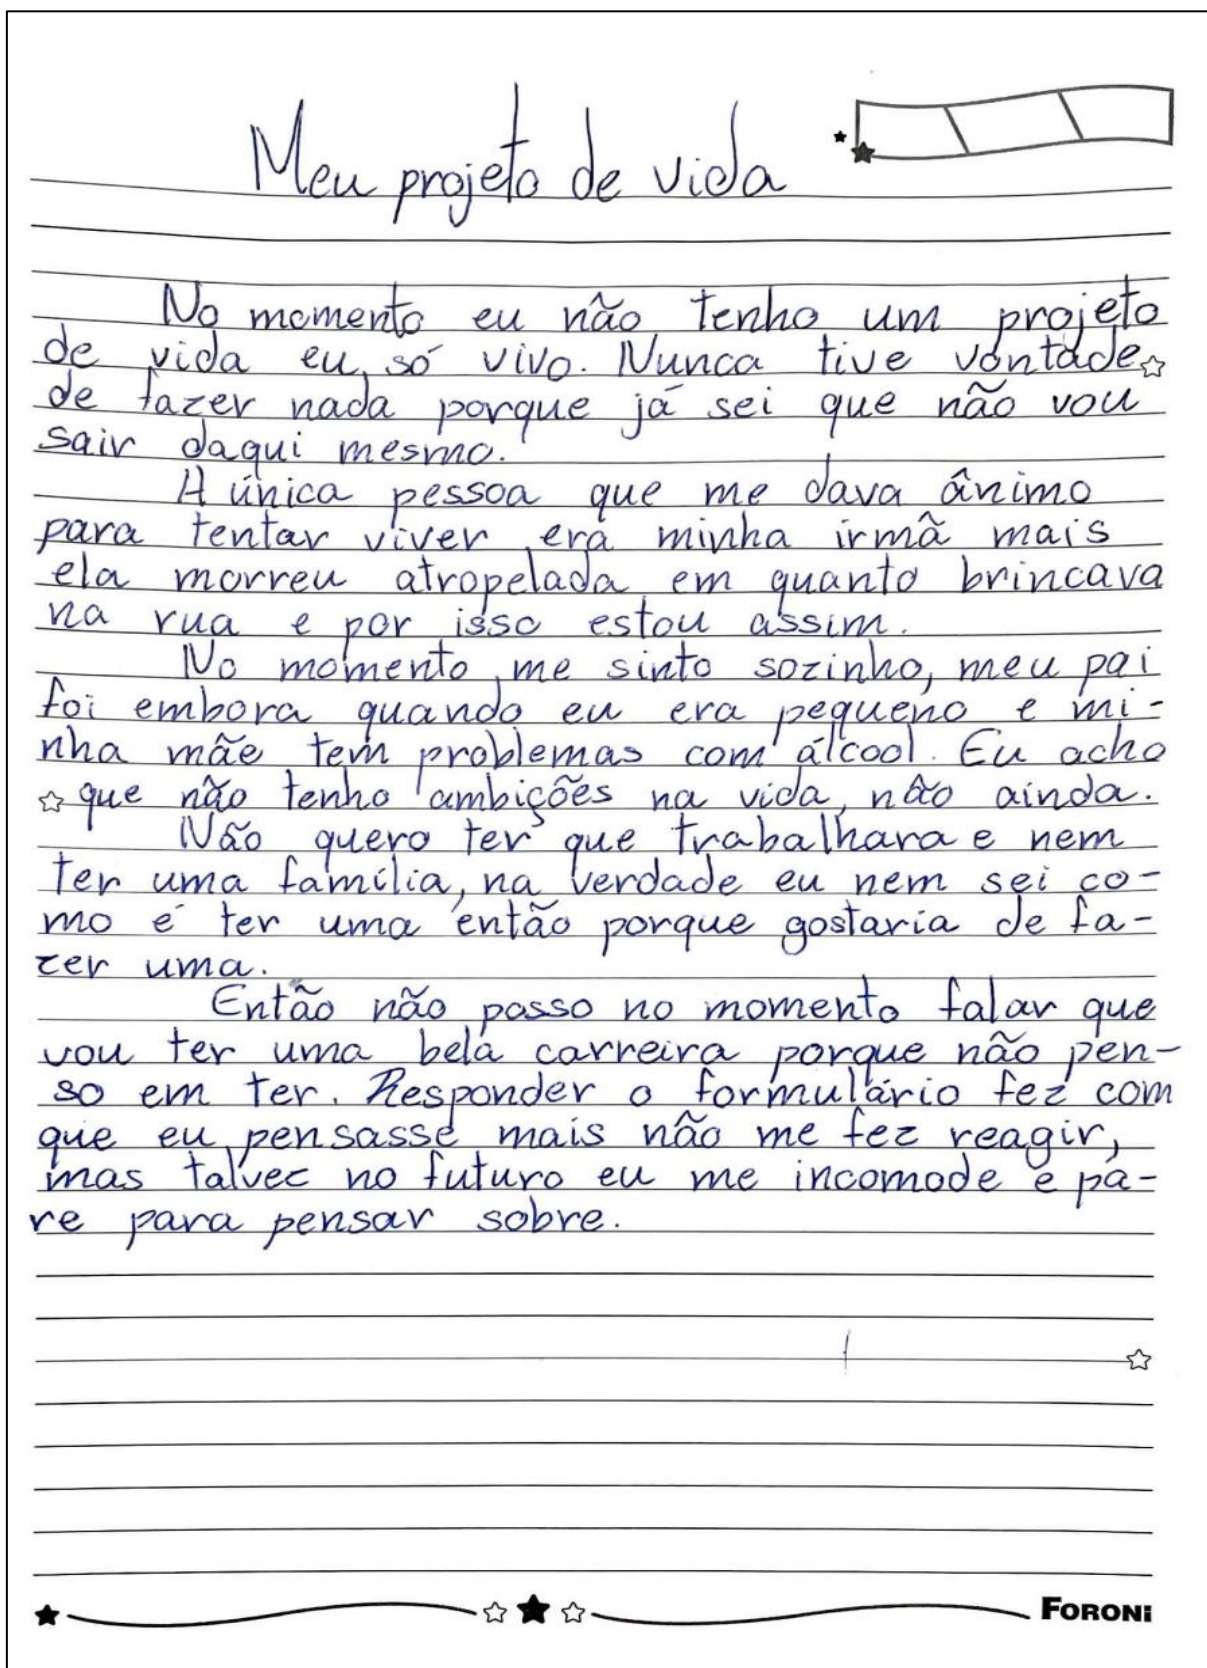 Meu projeto de vida
No momento eu não tenho um projeto
de vida eu só vivo. Nunca tive vontade
de fazer nada porque já sei que não vou
sair daqui mesmo.
A única pessoa que me dava ânimo
para tentar viver era minha irmã mais
ela morreu atropelada em quanto brincava
na rua e por isso estou assim.
No momento me sinto sozinho, meu pai
foi embora quando eu era pequeno e mi-
nha mãe tem problemas com álcool. Eu acho
que não tenho ambições na vida, não ainda.
Não quero ter que trabalhara e nem
ter uma família, na verdade eu nem sei co-
mo é ter uma então porque gostaria de fa-
zer uma.
Então não posso no momento falar que
vou ter uma bela carreira porque não pen-
so em ter. Responder o formulário fez com
que eu pensasse mais não me fez reagir,
mas talvez no futuro eu me incomode e pa-
re para pensar sobre.
FORONI